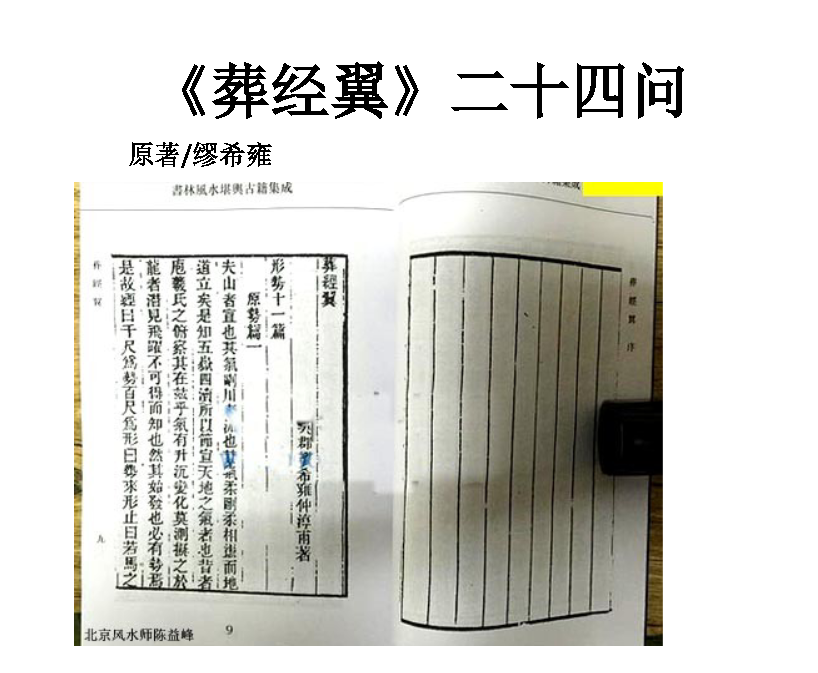 《葬经翼》二十四问
原著/缪希雍
書林風水堪輿古籍集成
葬經翼 序
葬經翼
吳郡 希雍仲淳甫著
形勢十一篇
原勢篇一
夫山者宣也其氣剛川 流也其氣柔剛柔相盪而地
道立矣是知五嶽四瀆所以節宣天地之氣者也昔者
庖羲氏之俯察其在茲乎氣有升沉變化莫測擬之於
龍者潛見飛躍不可得而知也然其始發也必有勢焉
是故經曰千尺爲勢百尺爲形曰勢來形止曰若馬之
葬經翼
九
9
北京风水师陈益峰